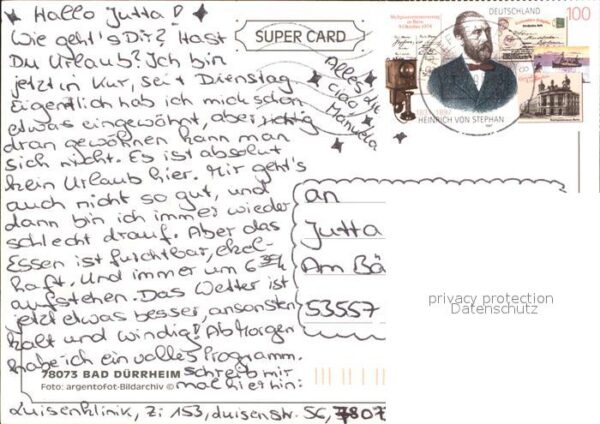 Hallo Jutta!
Wie geht's Dir? Hast
Du Urlaub? Ich bin
jetzt in Kur, seit Dienstag
Eigentlich hab ich mich schon
etwas eingewöhnt, aber richtig
dran gewöhnen kann man
sich nicht. Es ist absolut
kein Urlaub hier. Mir geht's
auch nicht so gut, und
dann bin ich immer wieder
schlecht drauf. Aber das
Essen ist furchtbar, ekel-
haft. Und immer um
aufstehen. Das Wetter ist
jetzt etwas besser, ansonsten
kalt und windig! Ab Morgen
habe ich ein volles Programm.
Schreib mir
mal hierhin:
Luisenklinik, Zi 153, Luisenstr. 56, 7807
Alles
ciao,
Manuela
SUPER CARD
DEUTSCHLAND
100
HEINRICH VON STEPHAN
an
Jutta
Am Bä
53557
privacy protection
Datenschutz
78073 BAD DÜRRHEIM
Foto: argentofot-Bildarchiv ©